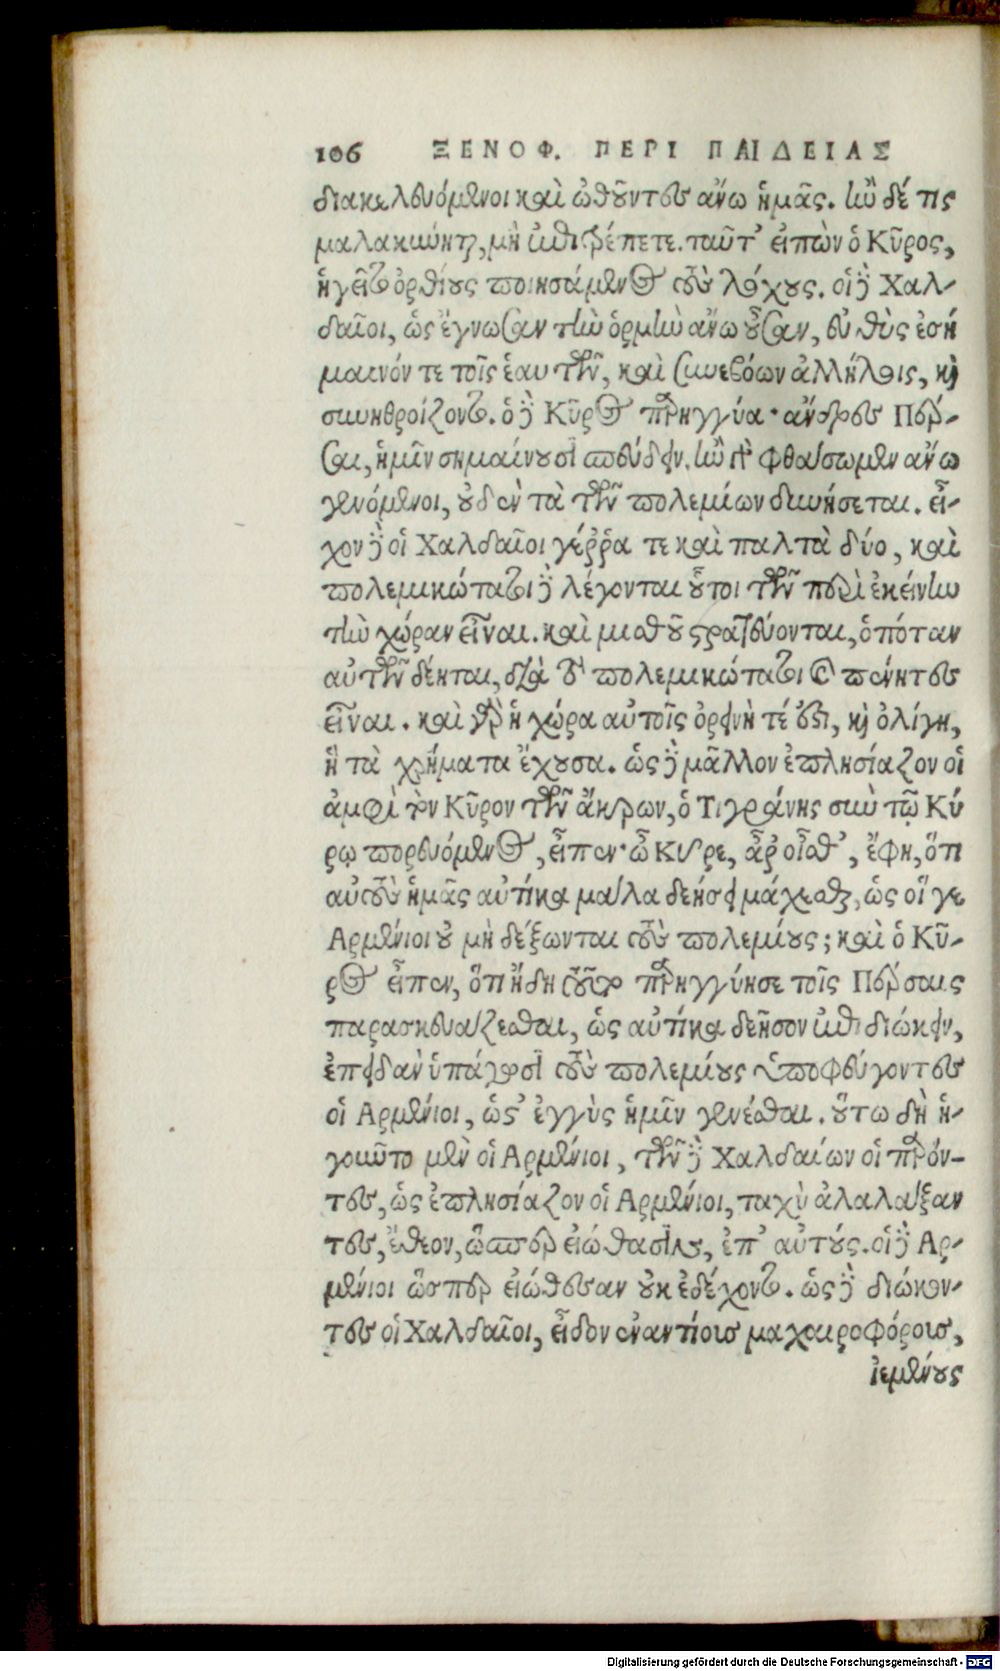 106 ΞΕΝΟΦ. ΠΕΡΙ ΠΑΙΔΕΙΑΣ
διακελευόμενοι καὶ ὠθοῦντες ἄνω ἡμᾶς. ἢν δέ τις
μαλακύνηται, μὴ ἐπιτρέπετε. ταῦτ' εἰπὼν ὁ Κῦρος,
ἡγεῖτο ὀρθίους ποιησάμενος τοὺς λόχους. οἱ δὲ Χαλ-
δαῖοι, ὡς ἔγνωσαν τὴν ὁρμὴν ἄνω οὖσαν, εὐθὺς ἐσή
μαινόν τε τοῖς ἑαυτῶν, καὶ συνεβόων ἀλλήλοις, καὶ
συνηθροίζοντο. ὁ δὲ Κῦρος παρηγγύα· ἄνδρες Πέρ-
σαι, ἡμῖν σημαίνουσι σπεύδειν. ἢν γὰρ φθάσωμεν ἄνω
γενόμενοι, οὐδὲν τὰ τῶν πολεμίων δυνήσεται. εἶ-
χον δὲ οἱ Χαλδαῖοι γέῤῥα τε καὶ παλτὰ δύο, καὶ
πολεμικώτατοι δὲ λέγονται οὗτοι τῶν περὶ ἐκείνην
τὴν χώραν εἶναι. καὶ μισθοῦ στρατεύονται, ὁπόταν
αὐτῶν δέηται, διὰ τὸ πολεμικώτατοι καὶ πένητες
εἶναι. καὶ γὰρ ἡ χώρα αὐτοῖς ὀρεινή τέ ἐστι, καὶ ὀλίγη,
ἡ τὰ χρήματα ἔχουσα. ὡς δὲ μᾶλλον ἐπλησίαζον οἱ
ἀμφὶ τὸν Κῦρον τῶν ἄκρων, ὁ Τιγράνης σὺν τῷ Κύ
ρῳ πορευόμενος, εἶπεν· ὦ Κῦρε, ἆρ' οἶσθ', ἔφη, ὅτι
αὐτοὺς ἡμᾶς αὐτίκα μάλα δεήσει μάχεσθαι, ὡς οἵ γε
Ἀρμένιοι οὐ μὴ δέξωνται τοὺς πολεμίους; καὶ ὁ Κῦ-
ρος εἶπεν, ὅτι ἤδη τοῦτο παρηγγύησε τοῖς Πέρσαις
παρασκευάζεσθαι, ὡς αὐτίκα δεῆσον ἐπιδιώκειν,
ἐπειδὰν ὑπάγωσι τοὺς πολεμίους ὑποφεύγοντες
οἱ Ἀρμένιοι, ὥς' ἐγγὺς ἡμῖν γενέσθαι. οὕτω δὴ ἡ-
γοῦντο μὲν οἱ Ἀρμένιοι, τῶν δὲ Χαλδαίων οἱ παρόν-
τες, ὡς ἐπλησίαζον οἱ Ἀρμένιοι, ταχὺ ἀλαλάξαν
τες, ἔθεον, ὥσπερ εἰώθασιν, ἐπ' αὐτούς. οἱ δὲ Ἀρ-
μένιοι ὥσπερ εἰώθεσαν οὐκ ἐδέχοντο. ὡς δὲ διώκον-
τες οἱ Χαλδαῖοι, εἶδον ἐναντίους μαχαιροφόρους,
ἱεμένους
Digitalisierung gefördert durch die Deutsche Forschungsgemeinschaft - DFG